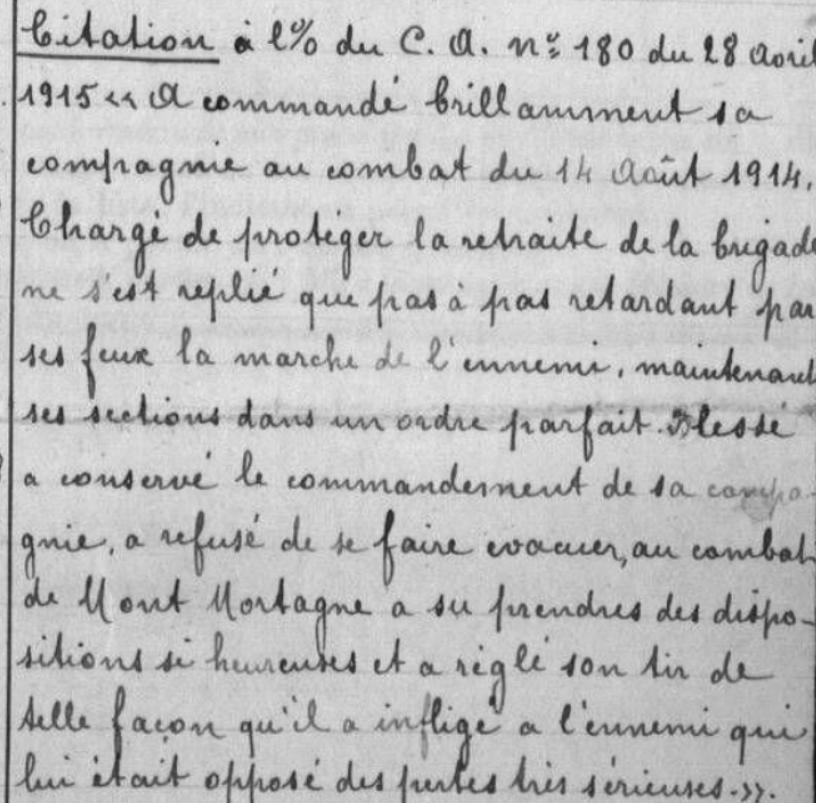 Citation à l'% du C. A. n° 180 du 28 Avril
1915 « A commandé brillamment sa
compagnie au combat du 14 Août 1914.
Chargé de proteger la retraite de la brigade
ne s'est replié que pas à pas retardant par
ses feux la marche de l'ennemi, maintenant
ses sections dans un ordre parfait. Blessé
a conservé le commandement de sa compa-
gnie, a refusé de se faire evacuer, au combat
de Mont Mortagne a su prendres des dispo-
sitions si heureuses et a réglé son tir de
telle façon qu'il a infligé a l'ennemi qui
lui était opposé des pertes très sérieuses.».